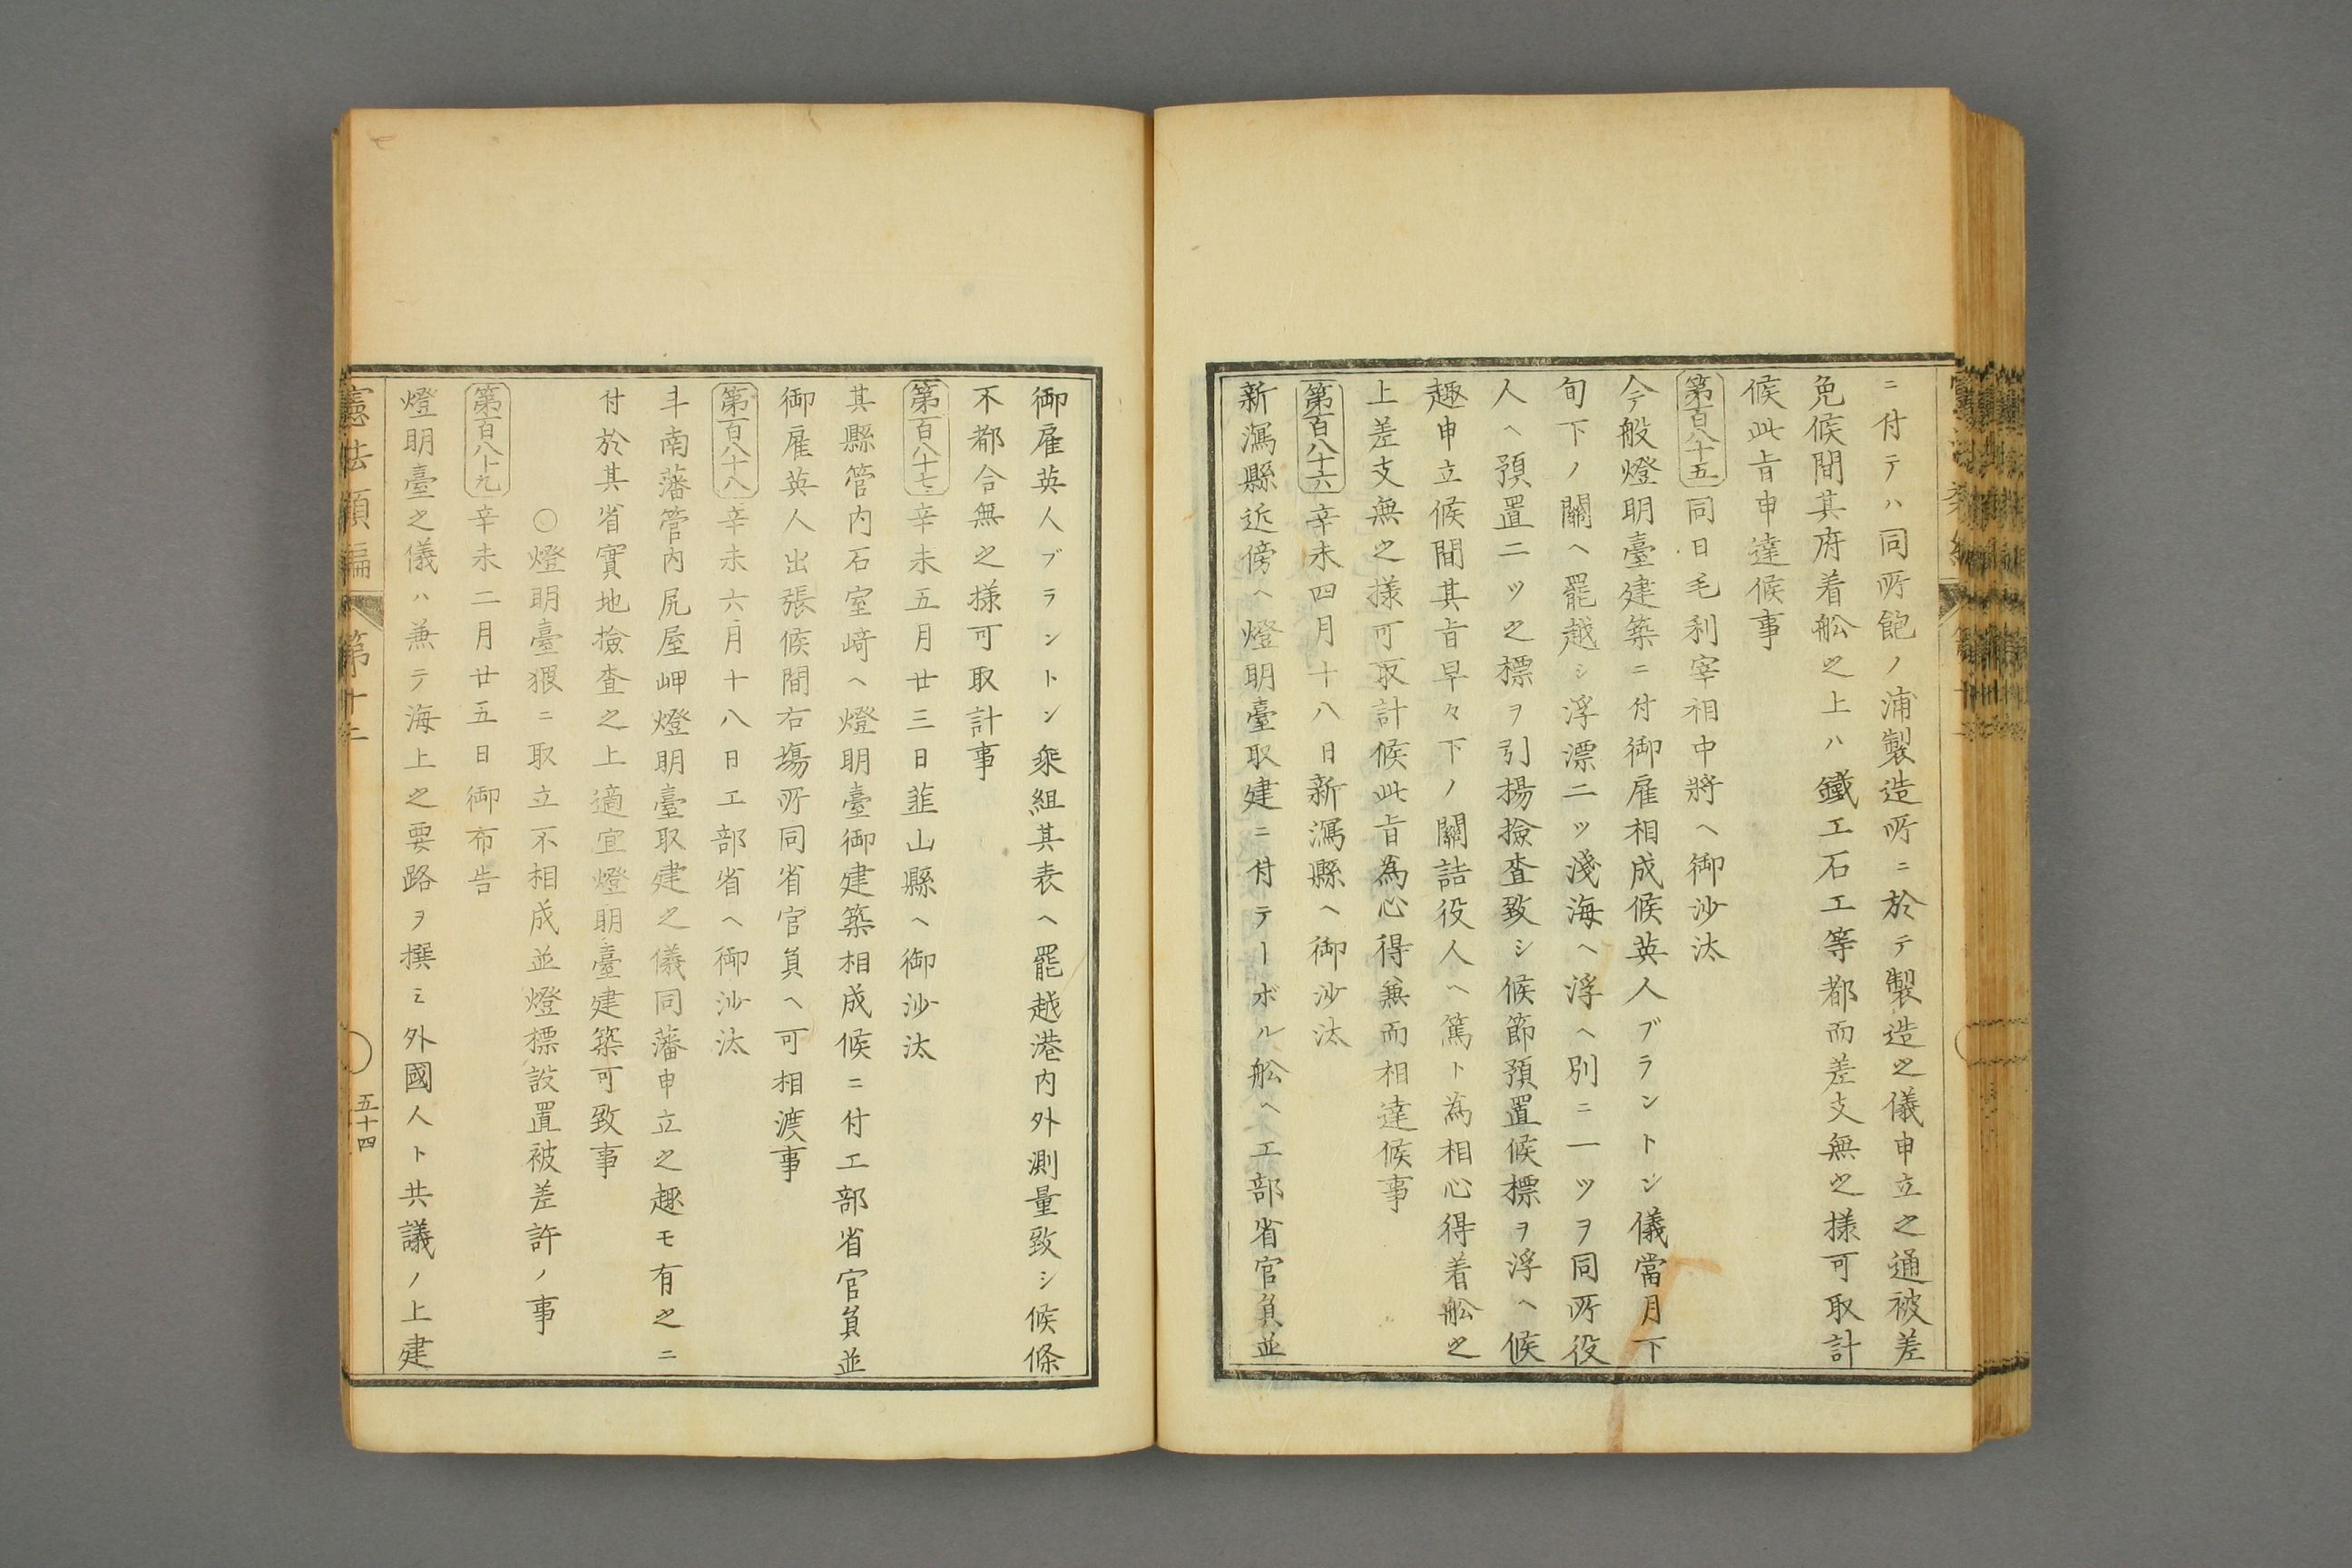 ニ付テハ同所飽ノ浦製造所ニ於テ製造之儀申立之通被差
免候間其府着舩之上ハ鐵工石工等都而差支無之様可取計
候此旨申達候事
第百八十五同日毛利宰相中將ヘ御沙汰
今般燈明臺建築ニ付御雇相成候英人ブラントン儀當月下
旬下ノ關ヘ罷越シ浮漂二ツ淺海ヘ浮ヘ別ニ一ツヲ同所役
人ヘ預置二ツ之標ヲ引揚撿査致シ候節預置候標ヲ浮ヘ候
趣申立候間其旨早々下ノ關詰役人ヘ篤ト為相心得着舩之
上差支無之様可取計候此旨為心得兼而相達候事
第百八十六辛未四月十八日新潟縣ヘ御沙汰
新潟縣近傍ヘ燈明臺取建ニ付テーボル舩ヘ工部省官員並
御雇英人ブラントン乘組其表ヘ罷越港内外測量致シ候條
不都合無之様可取計事
第百八十七辛未五月廿三日韮山縣ヘ御沙汰
其縣管内石室﨑ヘ燈明臺御建築相成候ニ付工部省官員並
御雇英人出張候間右塲所同省官員ヘ可相渡事
第百八十八辛未六月十八日工部省ヘ御沙汰
斗南藩管内尻屋岬燈明臺取建之儀同藩申立之趣モ有之ニ
付於其省實地撿査之上適宜燈明臺建築可致事
○燈明臺猥ニ取立不相成並燈標設置被差許ノ事
第百八十九辛未二月廿五日御布告
燈明臺之儀ハ兼テ海上之要路ヲ撰ミ外國人ト共議ノ上建
憲法類編 第十二
五十四